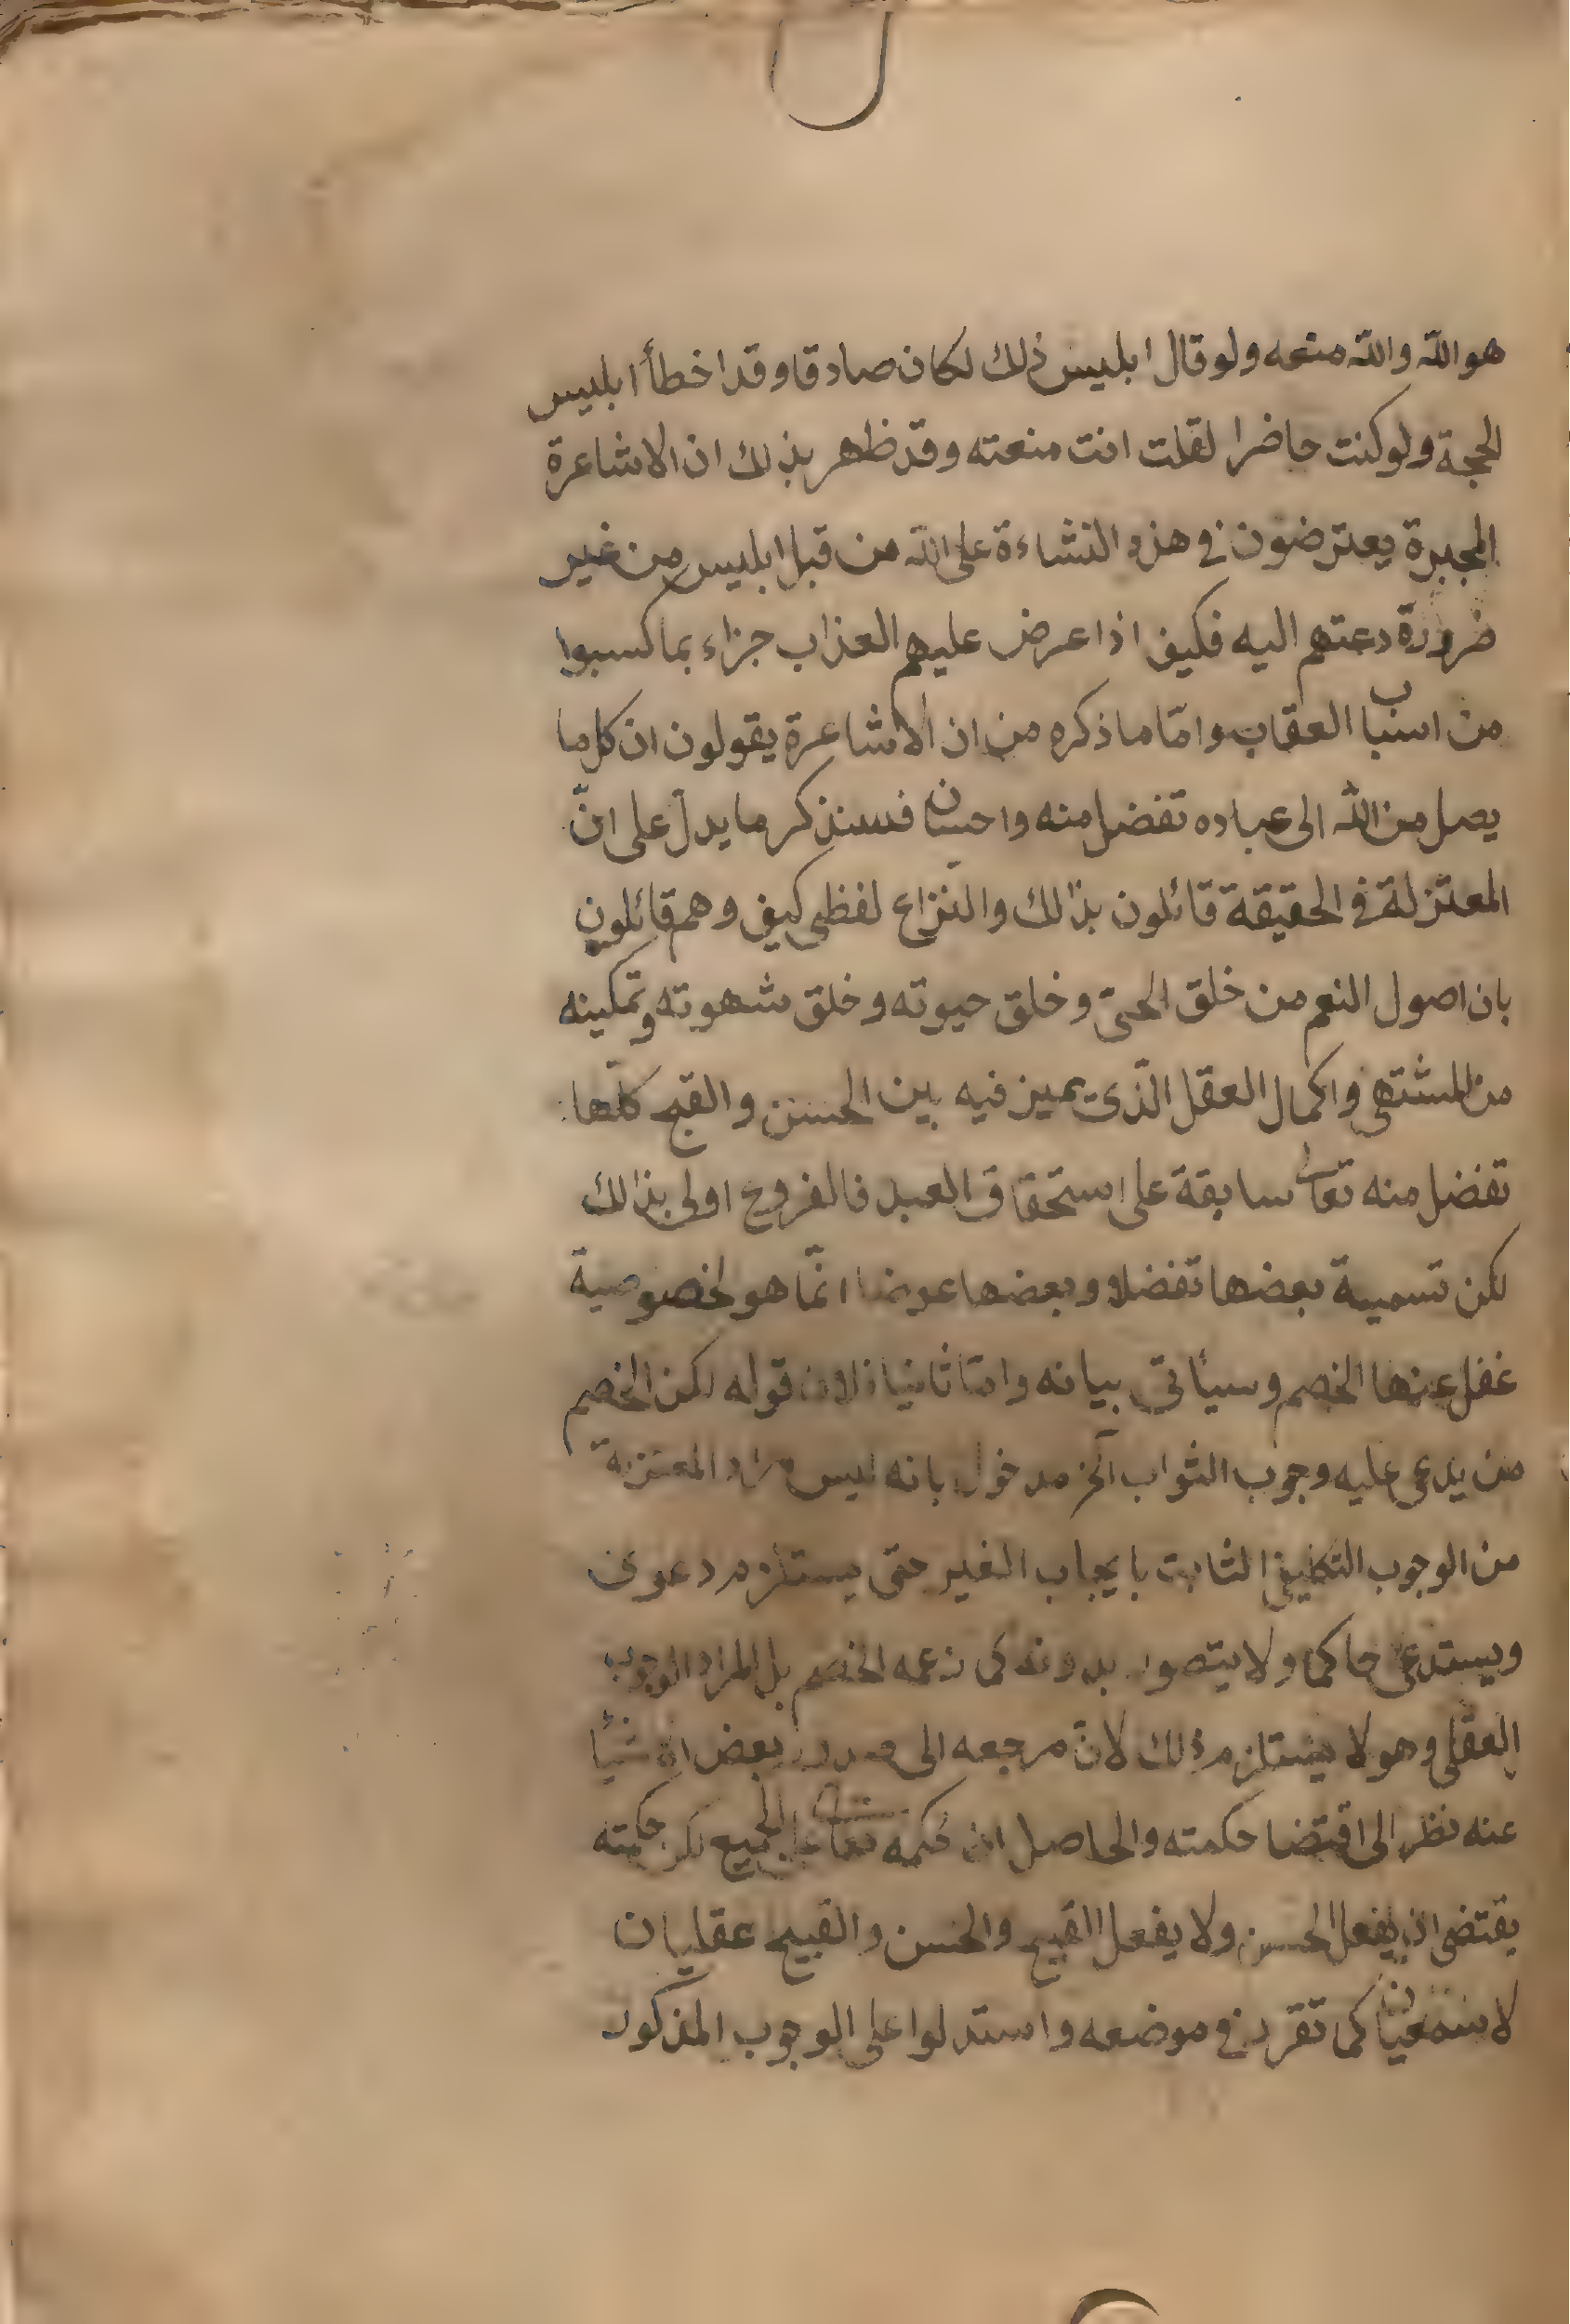 هو الله والله منعه ولو قال ابليس ذلك لكان صادقا وقد اخطأ ابليس
الحجة ولو كنت حاضرا لقلت انت منعته وقد ظهر بذلك ان الاشاعرة
المجبرة يعترضون في هذه النشاءة على الله من قبل ابليس من غير
ضرورة دعتهم اليه فكيف اذا عرض عليهم العذاب جزاء بما كسبوا
من اسباب العقاب وامّا ما ذكره من ان الاشاعرة يقولون ان كل ما
يصل من الله الى عباده تفضل منه واحسان فسنذكر ما يدلّ على انّ
المعتزلة في الحقيقة قائلون بذالك والنّزاع لفظي كيف وهم قائلون
بان اصول النعم من خلق الحيّ وخلق حيوته وخلق شهوته وتمكينه
من المشتهى واكمال العقل الّذي يميز فيه بين الحسن والقبح كلّها
تفضل منه تعالى سابقة على استحقاق العبد فالفروع اولى بذالك
لكن تسمية بعضها تفضلا وبعضها عوضا انّما هو لخصوصية
غفل عنها الخصم وسيأتي بيانه وامّا ثانيا فلان قوله لكن الخصم
من يدعى عليه وجوب الثواب آلخ مدخول بانه ليس مراد المعتزلة
من الوجوب التكليفي الثابت بايجاب الغير حتى يستلزم دعوى
ويستدعى حاكما ولا يتصور بدونه كما زعمه الخصم بل المراد الوجوب
العقلي وهو لا يستلزم ذلك لانّ مرجعه الى صدور بعض الاشيا
عنه نظر الى اقتضا حكمته والحاصل ان حكمه تعالى على الجميع لكن حكمته
يقتضى ان يفعل الحسن ولا يفعل القبيح والحسن والقبيح عقليان
لا سمعيان كما تقرر في موضعه واستدلوا على الوجوب المذكور